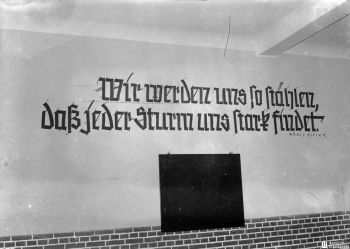 Wir werden uns so stählen,
daß jeder Sturm uns stark findet.
Adolf Hitler